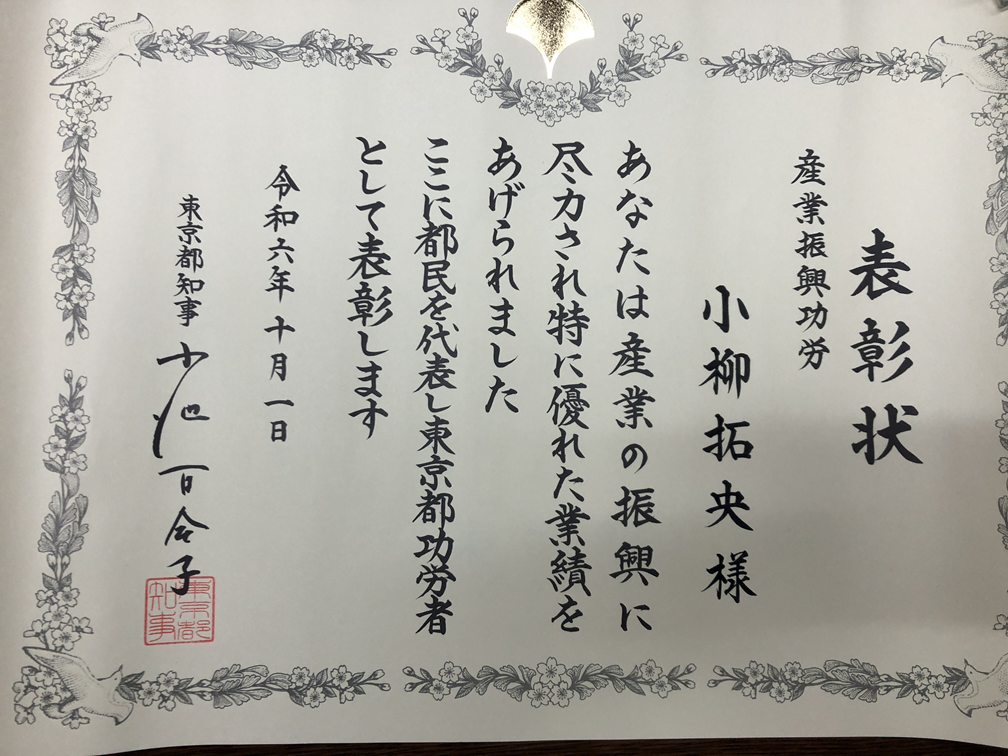 表彰状
産業振興功労
小柳拓央様
あなたは産業の振興に
尽力され特に優れた業績を
あげられました
ここに都民を代表し東京都功労者
として表彰します
令和六年十月一日
東京都知事 小池百合子
東京都知事